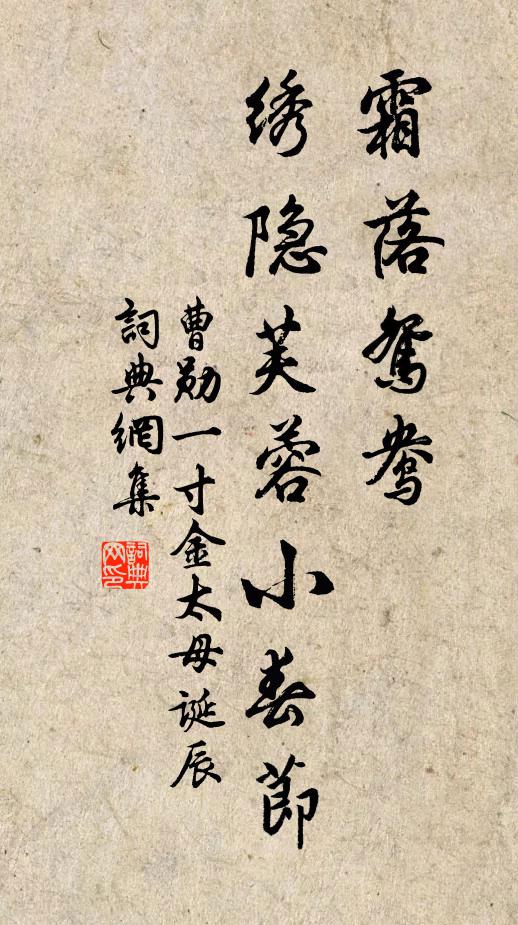 霜落鸳鸯
绣隐芙蓉小春节
曹勋一寸金太母诞辰
詞典網集
詞典網印